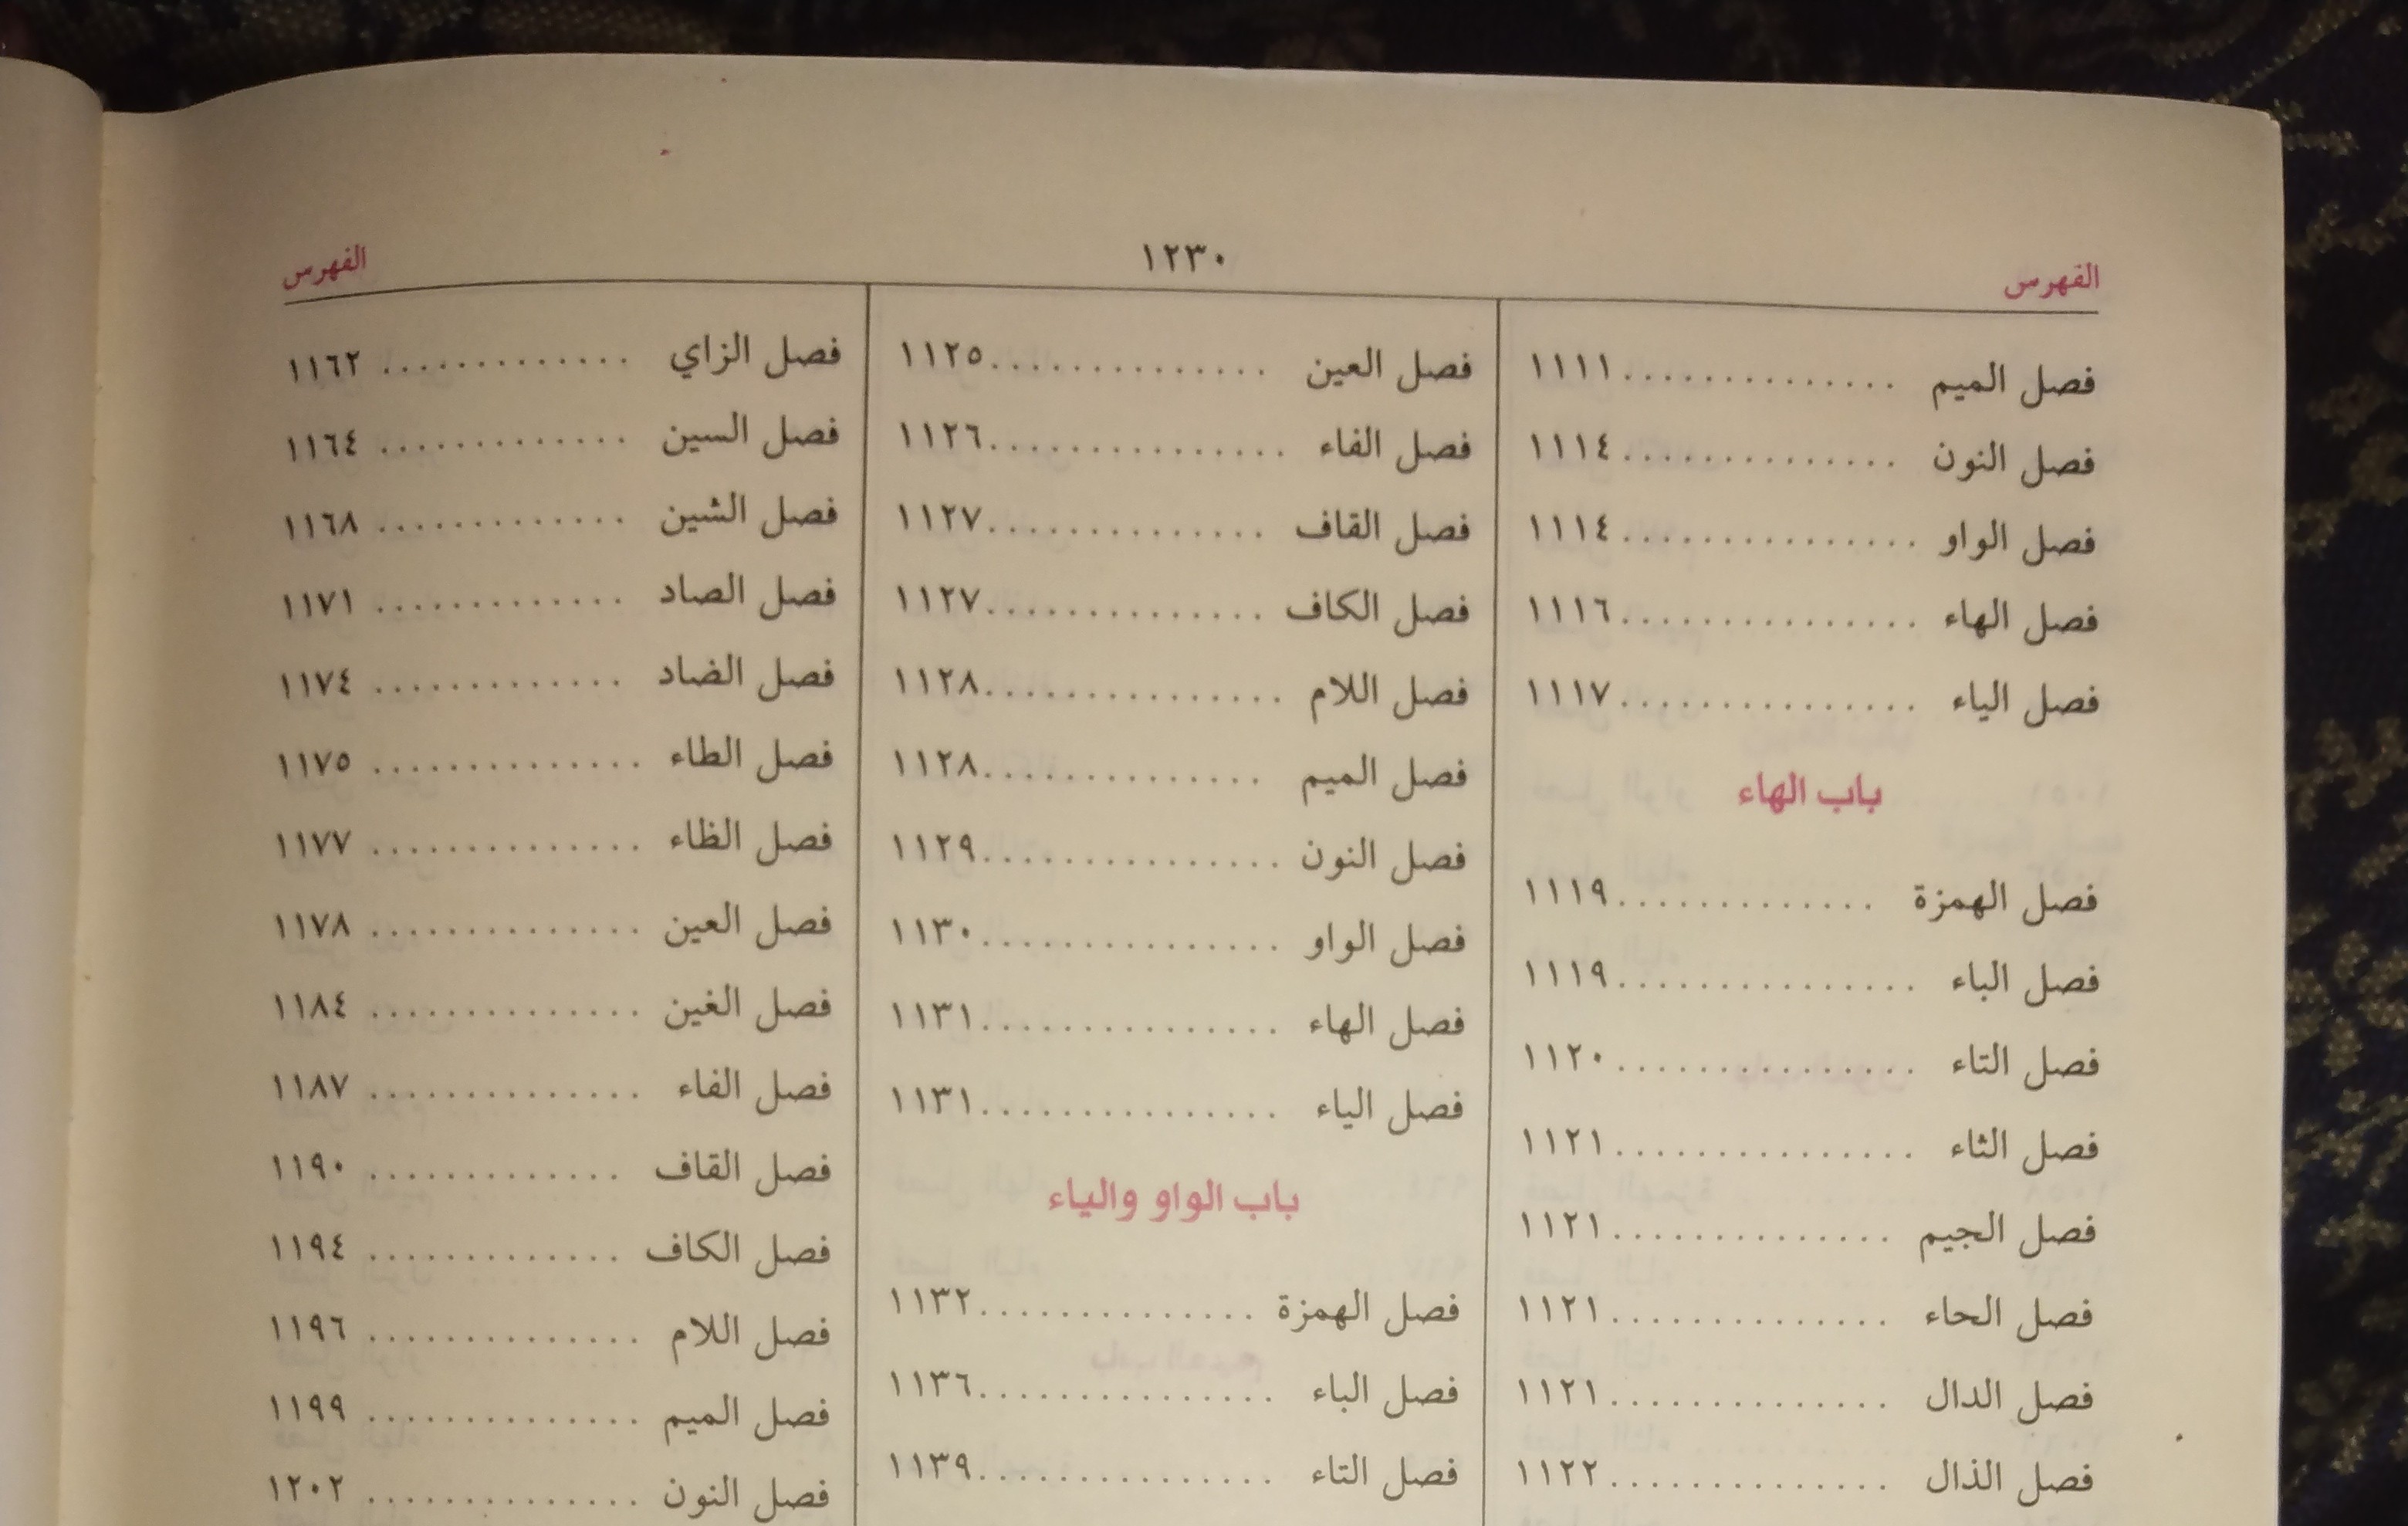 الفهرس
١٢٣٠
الفهرس
فصل الميم .............. ١١١١
فصل النون .............. ١١١٤
فصل الواو ............... ١١١٤
فصل الهاء ............... ١١١٦
فصل الياء ............... ١١١٧
باب الهاء
فصل الهمزة ............. ١١١٩
فصل الباء ............... ١١١٩
فصل التاء ............... ١١٢٠
فصل الثاء ............... ١١٢١
فصل الجيم .............. ١١٢١
فصل الحاء .............. ١١٢١
فصل الدال .............. ١١٢١
فصل الذال .............. ١١٢٢
فصل العين .............. ١١٢٥
فصل الفاء ............... ١١٢٦
فصل القاف .............. ١١٢٧
فصل الكاف .............. ١١٢٧
فصل اللام ............... ١١٢٨
فصل الميم .............. ١١٢٨
فصل النون ............... ١١٢٩
فصل الواو ............... ١١٣٠
فصل الهاء ............... ١١٣١
فصل الياء ............... ١١٣١
باب الواو والياء
فصل الهمزة .............. ١١٣٢
فصل الباء ............... ١١٣٦
فصل التاء ............... ١١٣٩
فصل الزاي ............. ١١٦٢
فصل السين ............. ١١٦٤
فصل الشين ............. ١١٦٨
فصل الصاد ............. ١١٧١
فصل الضاد ............. ١١٧٤
فصل الطاء .............. ١١٧٥
فصل الظاء .............. ١١٧٧
فصل العين .............. ١١٧٨
فصل الغين .............. ١١٨٤
فصل الفاء .............. ١١٨٧
فصل القاف ............. ١١٩٠
فصل الكاف ............. ١١٩٤
فصل اللام .............. ١١٩٦
فصل الميم .............. ١١٩٩
فصل النون .............. ١٢٠٢